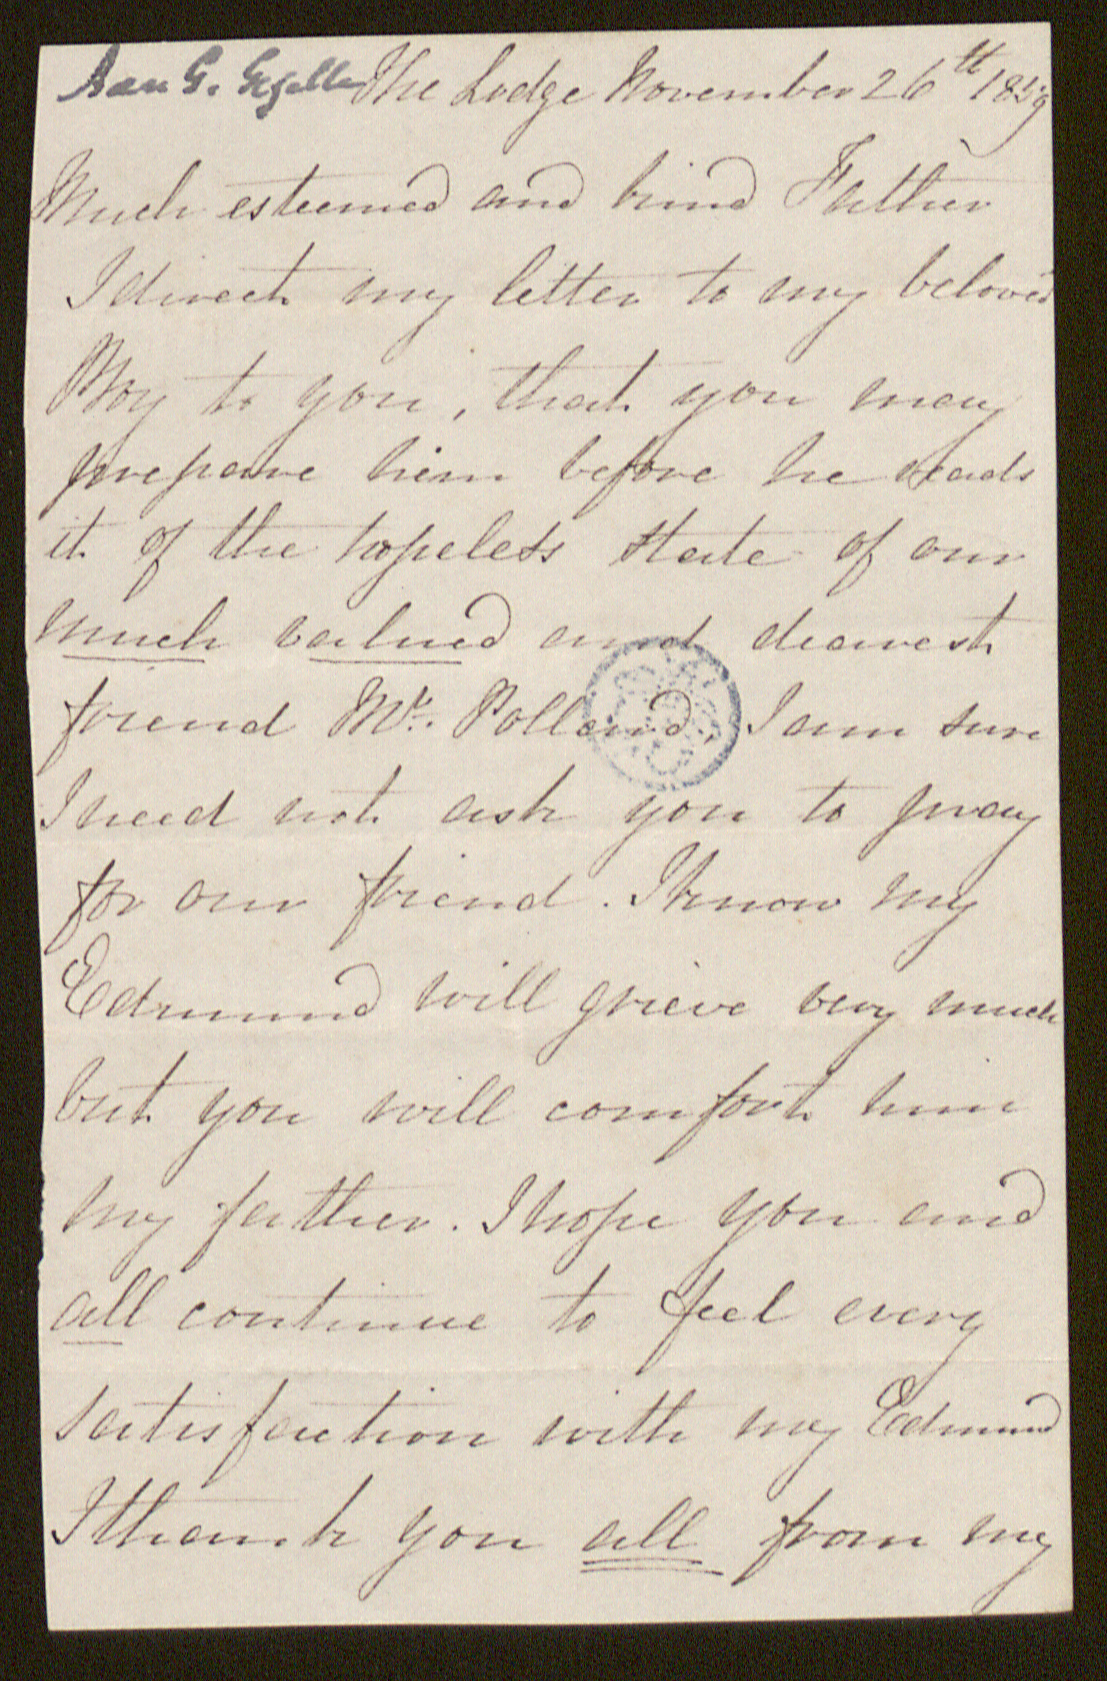 Aan G. Gezelle The Lodge November 26th 1859
Much esteemed and kind Father
I direct my letter to my beloved
Boy to you, that you may
prepare him before he reads
it of the hopeless state of our
much valued and dearest
friend Mr. Polland, I am sure
I need not ask you to pray
for our friend. I know my
Edmund will grieve very much
but you will comfort him
my father. I hope you and
all continue to feel every
satisfaction with my Edmund
I thank you all from my